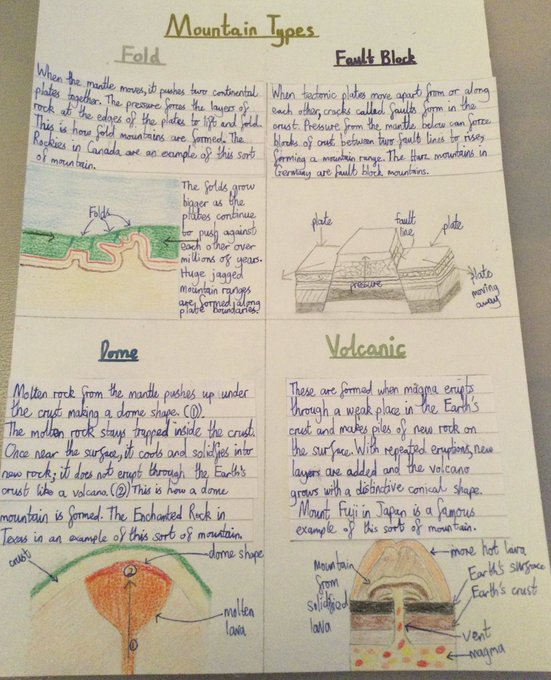 Mountain Types
Fold
When the mantle moves, it pushes two continental
plates together. The pressure forces the layers of
rock at the edges of the plates to lift and fold.
This is how fold mountains are formed. The
Rockies in Canada are an example of this sort
of mountain.
Folds
The folds grow
bigger as the
plates continue
to push against
each other over
millions of years.
Huge jagged
mountain ranges
are formed along
plate boundaries.
Fault Block
When tectonic plates move apart from or along
each other, cracks called faults form in the
crust. Pressure from the mantle below can force
blocks of crust between two fault lines to rise,
forming a mountain range. The Harz mountains in
Germany are fault block mountains.
plate
fault
line
plate
pressure
plate
moving
away
Dome
Molten rock from the mantle pushes up under
the crust making a dome shape. (1).
The molten rock stays trapped inside the crust.
Once near the surface, it cools and solidifies into
new rock; it does not erupt through the Earth's
crust like a volcano. (2) This is how a dome
mountain is formed. The Enchanted Rock in
Texas in an example of this sort of mountain.
crust
dome shape
2
molten
lava
1
Volcanic
These are formed when magma erupts
through a weak place in the Earth's
crust and makes piles of new rock on
the surface. With repeated eruptions, new
layers are added and the volcano
grows with a distinctive conical shape.
Mount Fuji in Japan is a famous
example of this sort of mountain.
Mountain
from
solidified
lava
more hot lava
Earth's surface
Earth's crust
vent
magma